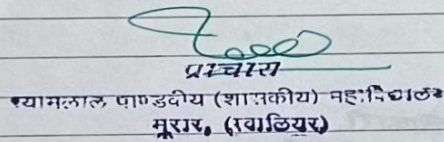 प्राचार्य
श्यामलाल पाण्डवीय (शासकीय) महाविद्यालय
मुरार, (ग्वालियर)